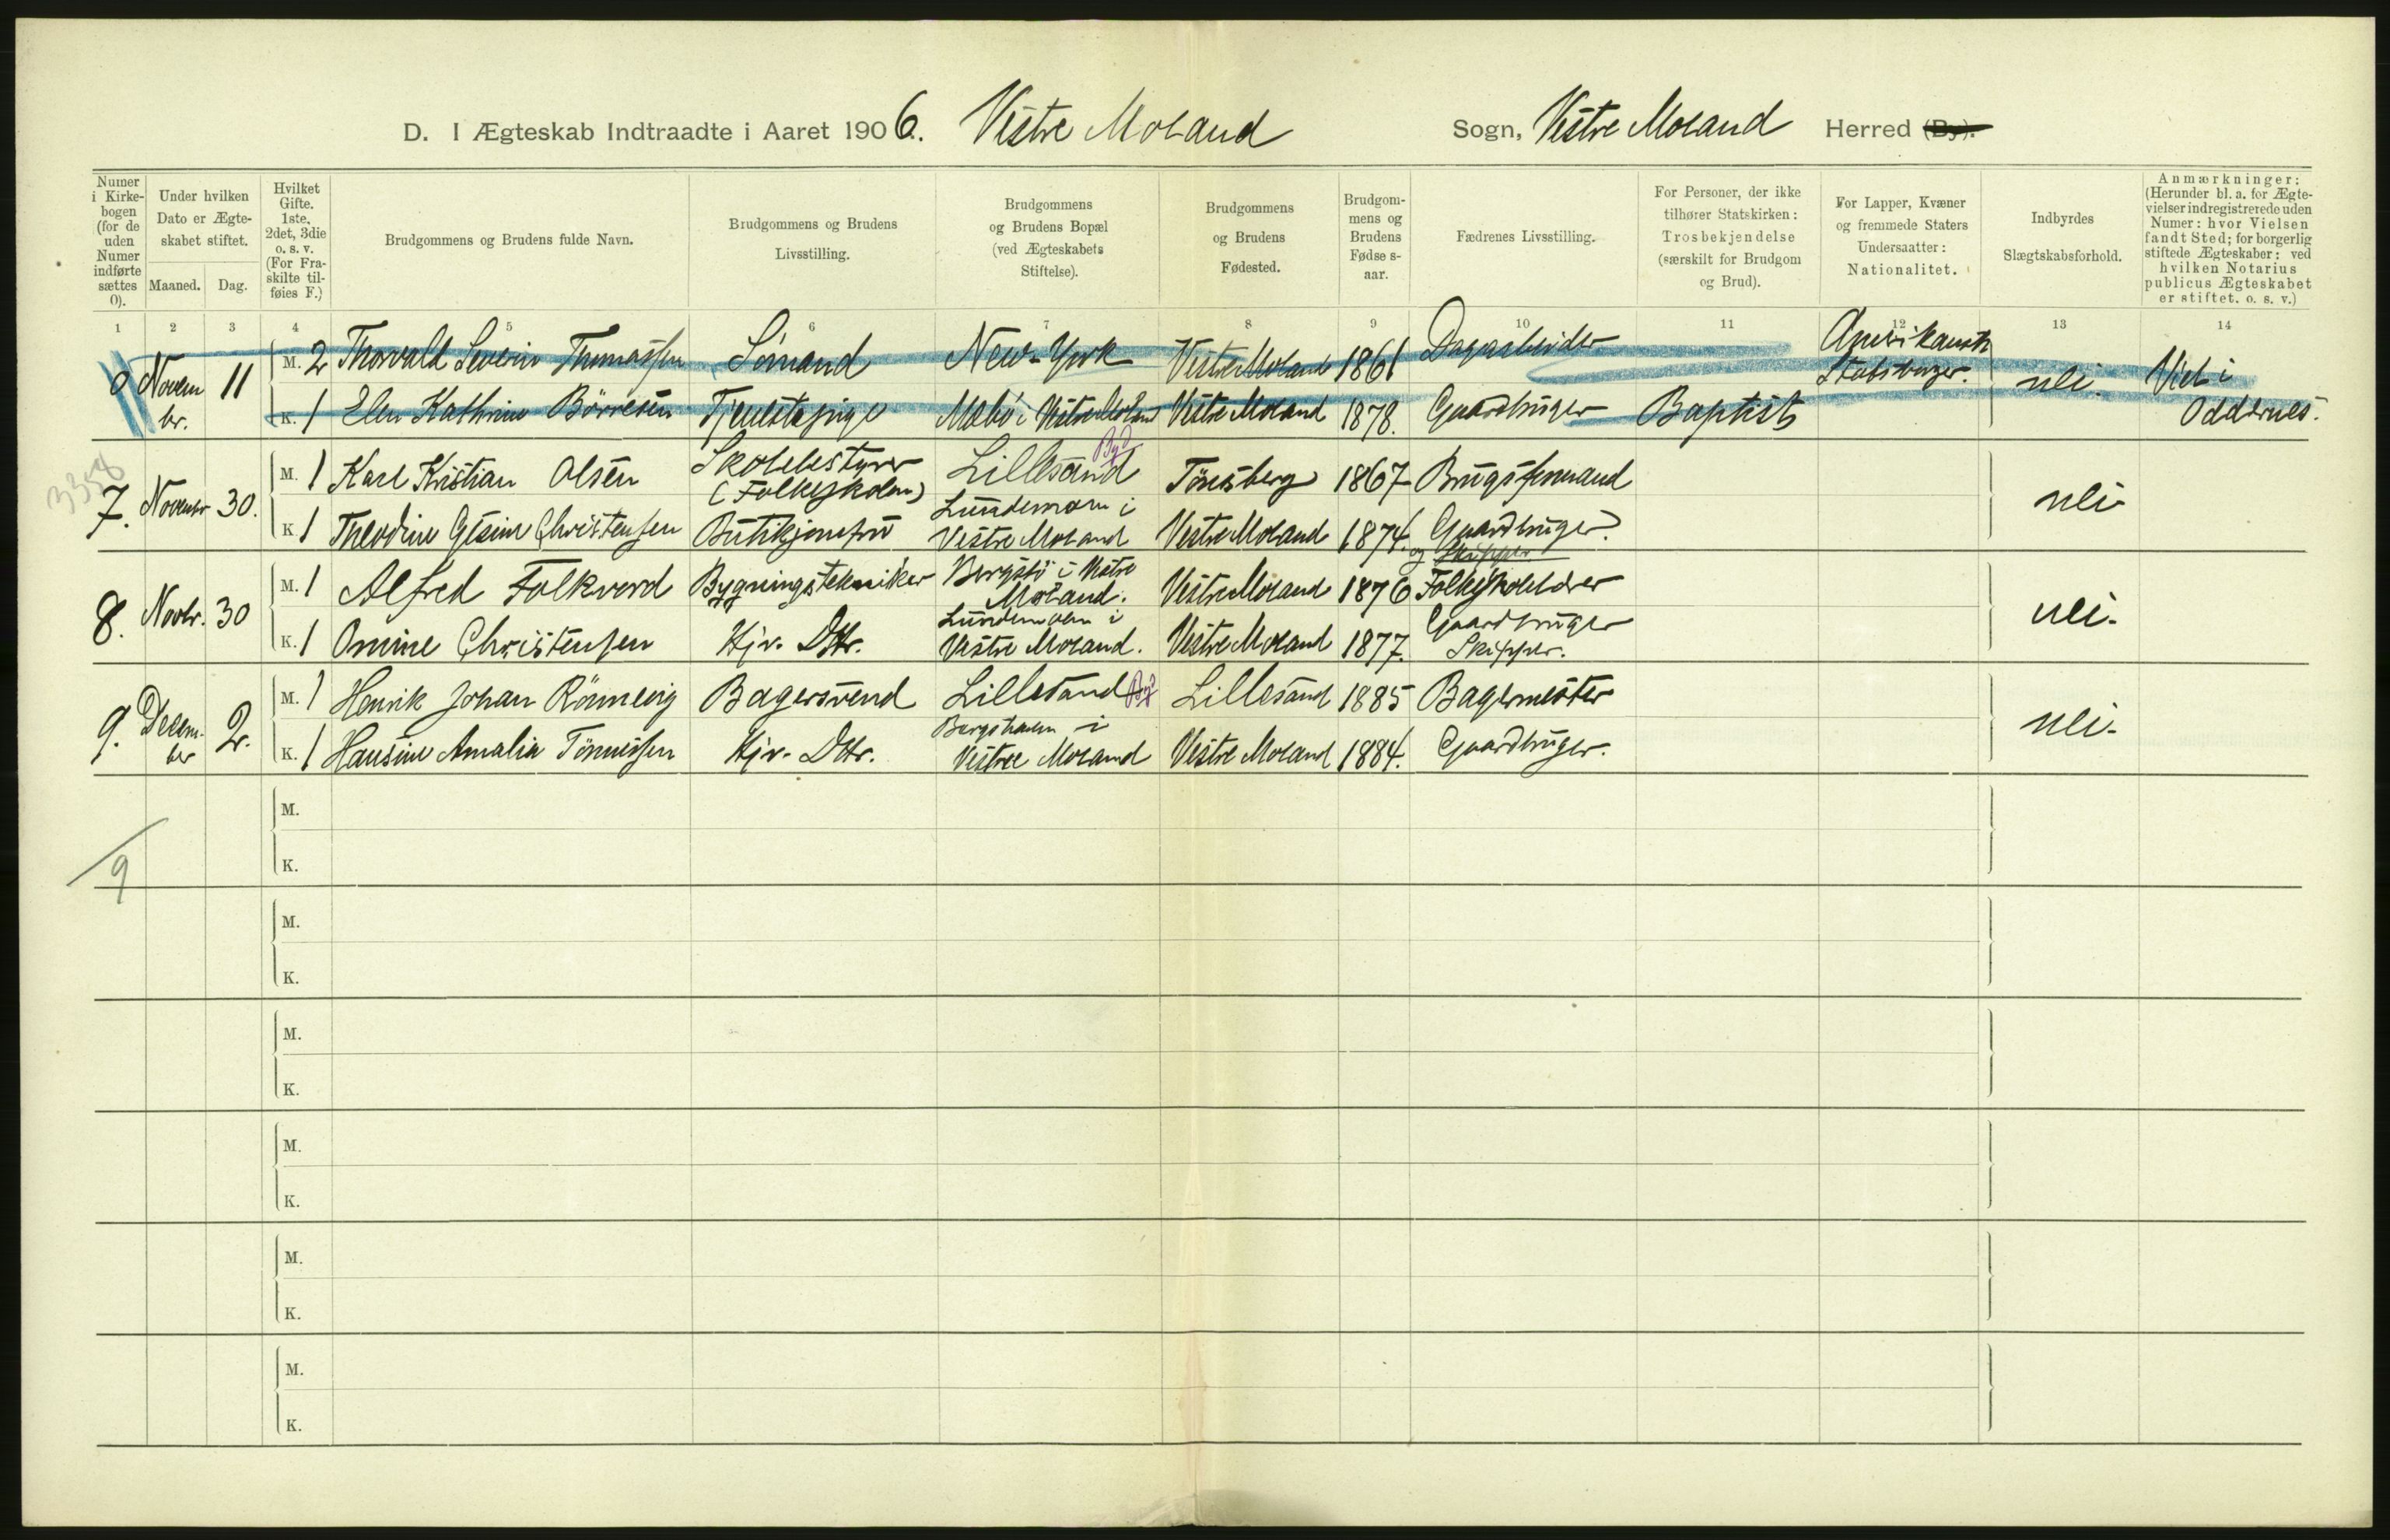 D. I Ægteskab Indtraadte i Aaret 1906. Vestre Moland Sogn, Vestre Moland Herred (By).
Numer i Kirkebogen (for de uden Numer indførte sættes 0).
Under hvilken Dato er Ægteskabet stiftet.
Maaned. Dag.
Hvilket Gifte. 1ste, 2det, 3die o. s. v. (For Fraskilte tilføies F.)
Brudgommens og Brudens fulde Navn.
Brudgommens og Brudens Livsstilling.
Brudgommens og Brudens Bopæl (ved Ægteskabets Stiftelse).
Brudgommens og Brudens Fødested.
Brudgommens og Brudens Fødselsaar.
Fædrenes Livsstilling.
For Personer, der ikke tilhører Statskirken: Trosbekjendelse (særskilt for Brudgom og Brud).
For Lapper, Kvæner og fremmede Staters Undersaatter: Nationalitet.
Indbyrdes Slægtskabsforhold.
Anmærkninger: (Herunder bl. a. for Ægtevielser indregistrerede uden Numer: hvor Vielsen fandt Sted; for borgerlig stiftede Ægteskaber: ved hvilken Notarius publicus Ægteskabet er stiftet. o. s. v.)
1 2 3 4 5 6 7 8 9 10 11 12 13 14
0 Novem br. 11 M. 2 Thorvald Severin Thomassen Sömand New-York Vestre Moland 1861 Dagarbeider Amerikansk Statsborger. nei. Viet i Oddernes.
K. 1 Elen Kathrine Börresen Tjenestepige Mebö i Vestre Moland Vestre Moland 1878. Gaardbruger Baptist
3358
7. Novembr 30. M. 1 Karl Kristian Olsen Skolebestyrer (Folkeskolen) Lillesand By Tönsberg 1867 Brugsformand nei
K 1 Theodine Gesine Christensen Butikjomfru Lundemoen i Vestre Moland Vestre Moland 1874. Gaardbruger og Skipper
8. Novbr. 30 M. 1 Alfred Folkvord Bygningstekniker Bergstö i Vestre Moland. Vestre Moland 1876 Folkeskolelærer nei.
K. 1 Omine Christensen Hjv. Dtr. Lundemoen i Vestre Moland. Vestre Moland 1877. Gaardbruger Skipper.
9. Decem-ber 2. M. 1 Henrik Johan Rönnevig Bagersvend Lillesand By Lillesand 1885 Bagermester nei.
K. 1 Hansine Amalia Tönnessen Hjv. Dtr. i Vestre Moland Vestre Moland 1884. Gaardbruger.
M.
9
K.
M.
K.
M.
K.
M.
K.
M.
K.
M.
K.